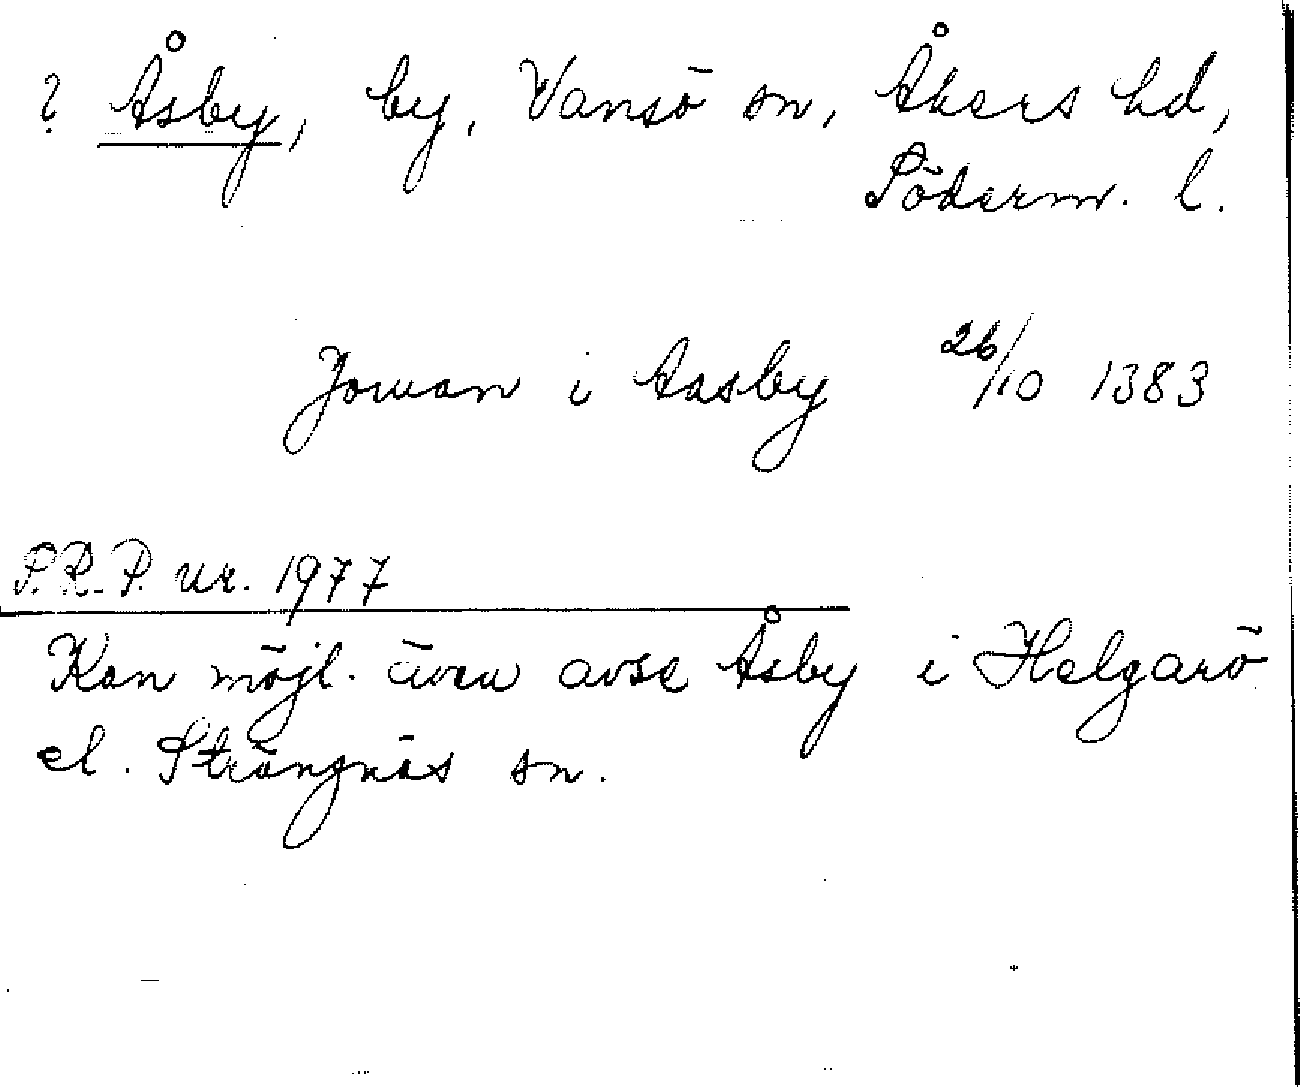 ? Åsby, by, Vansö sn, Åkers hd,
Söderm. l.
Jowan i Aasby 26/10 1383
S.R.P. nr. 1977
Kan möjl. även avse Åsby i Helgarö
el. Strängnäs sn.